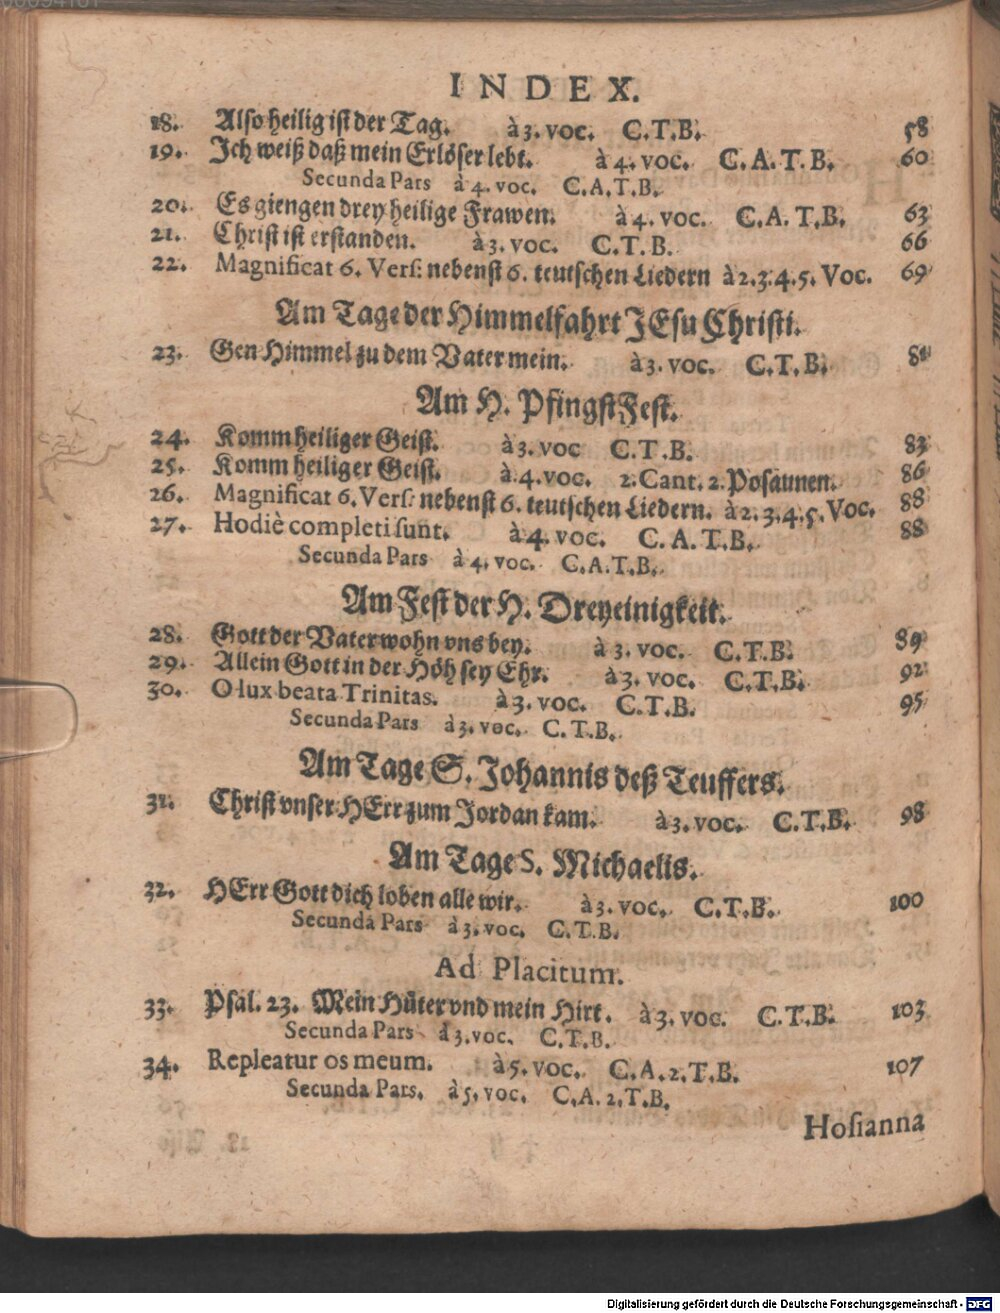 INDEX.
18. Also heilig ist der Tag. à 3. voc. C.T.B. 58
19. Ich weiß daß mein Erlöser lebt. à 4. voc. C.A.T.B. 60
Secunda Pars à 4. voc. C.A.T.B.
20. Es giengen drey heilige Frawen. à 4. voc. C.A.T.B. 63
21. Christ ist erstanden. à 3. voc. C.T.B. 66
22. Magnificat 6. Vers: nebenst 6. teutschen Liedern à 2.3.4.5. Voc. 69
Am Tage der Himmelfahrt JEsu Christi.
23. Gen Himmel zu dem Vater mein. à 3. voc. C.T.B. 81
Am H. PfingstFest.
24. Komm heiliger Geist. à 3. voc C.T.B. 83
25. Komm heiliger Geist. à 4. voc. 2. Cant. 2. Posaunen. 86
26. Magnificat 6. Vers: nebenst 6. teutschen Liedern. à 2.3.4.5. Voc. 88
27. Hodiè completi sunt. à 4. voc. C.A.T.B. 88
Secunda Pars à 4. voc. C.A.T.B.
Am Fest der H. Dreyeinigkeit.
28. Gott der Vater wohn vns bey. à 3. voc. C.T.B. 89
29. Allein Gott in der Höh sey Ehr. à 3. voc. C.T.B. 92
30. O lux beata Trinitas. à 3. voc. C.T.B. 95
Secunda Pars à 3. voc. C.T.B.
Am Tage S. Johannis deß Teuffers.
31. Christ vnser HErr zum Jordan kam. à 3. voc. C.T.B. 98
Am Tage S. Michaelis.
32. HErr Gott dich loben alle wir. à 3. voc. C.T.B. 100
Secunda Pars à 3. voc. C.T.B.
Ad Placitum.
33. Psal. 23. Mein Hüter vnd mein Hirt. à 3. voc. C.T.B. 103
Secunda Pars à 3. voc. C.T.B.
34. Repleatur os meum. à 5. voc. C.A.2.T.B. 107
Secunda Pars. à 5. voc. C.A.2.T.B.
Hosianna
Digitalisierung gefördert durch die Deutsche Forschungsgemeinschaft - DFG